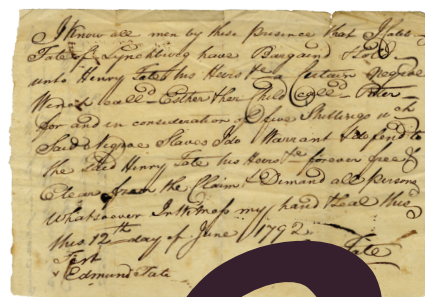 Know all men by these presence that I
Tate of Lynchburg have Bargain'd Sold
unto Henry Tate his Heirs &c a Certain Negroe
Wench call'd Esther & her Child call'd Peter
for and in consideration of five Shillings
Said Negroe Slaves I do Warrant & defend to
the Said Henry Tate his Heirs &c forever free &
Clear from the Claim & Demand all persons
Whatsoever In Witness my hand & Seal this
this 12th day of June 1792
Tate
Test
Edmund Tate